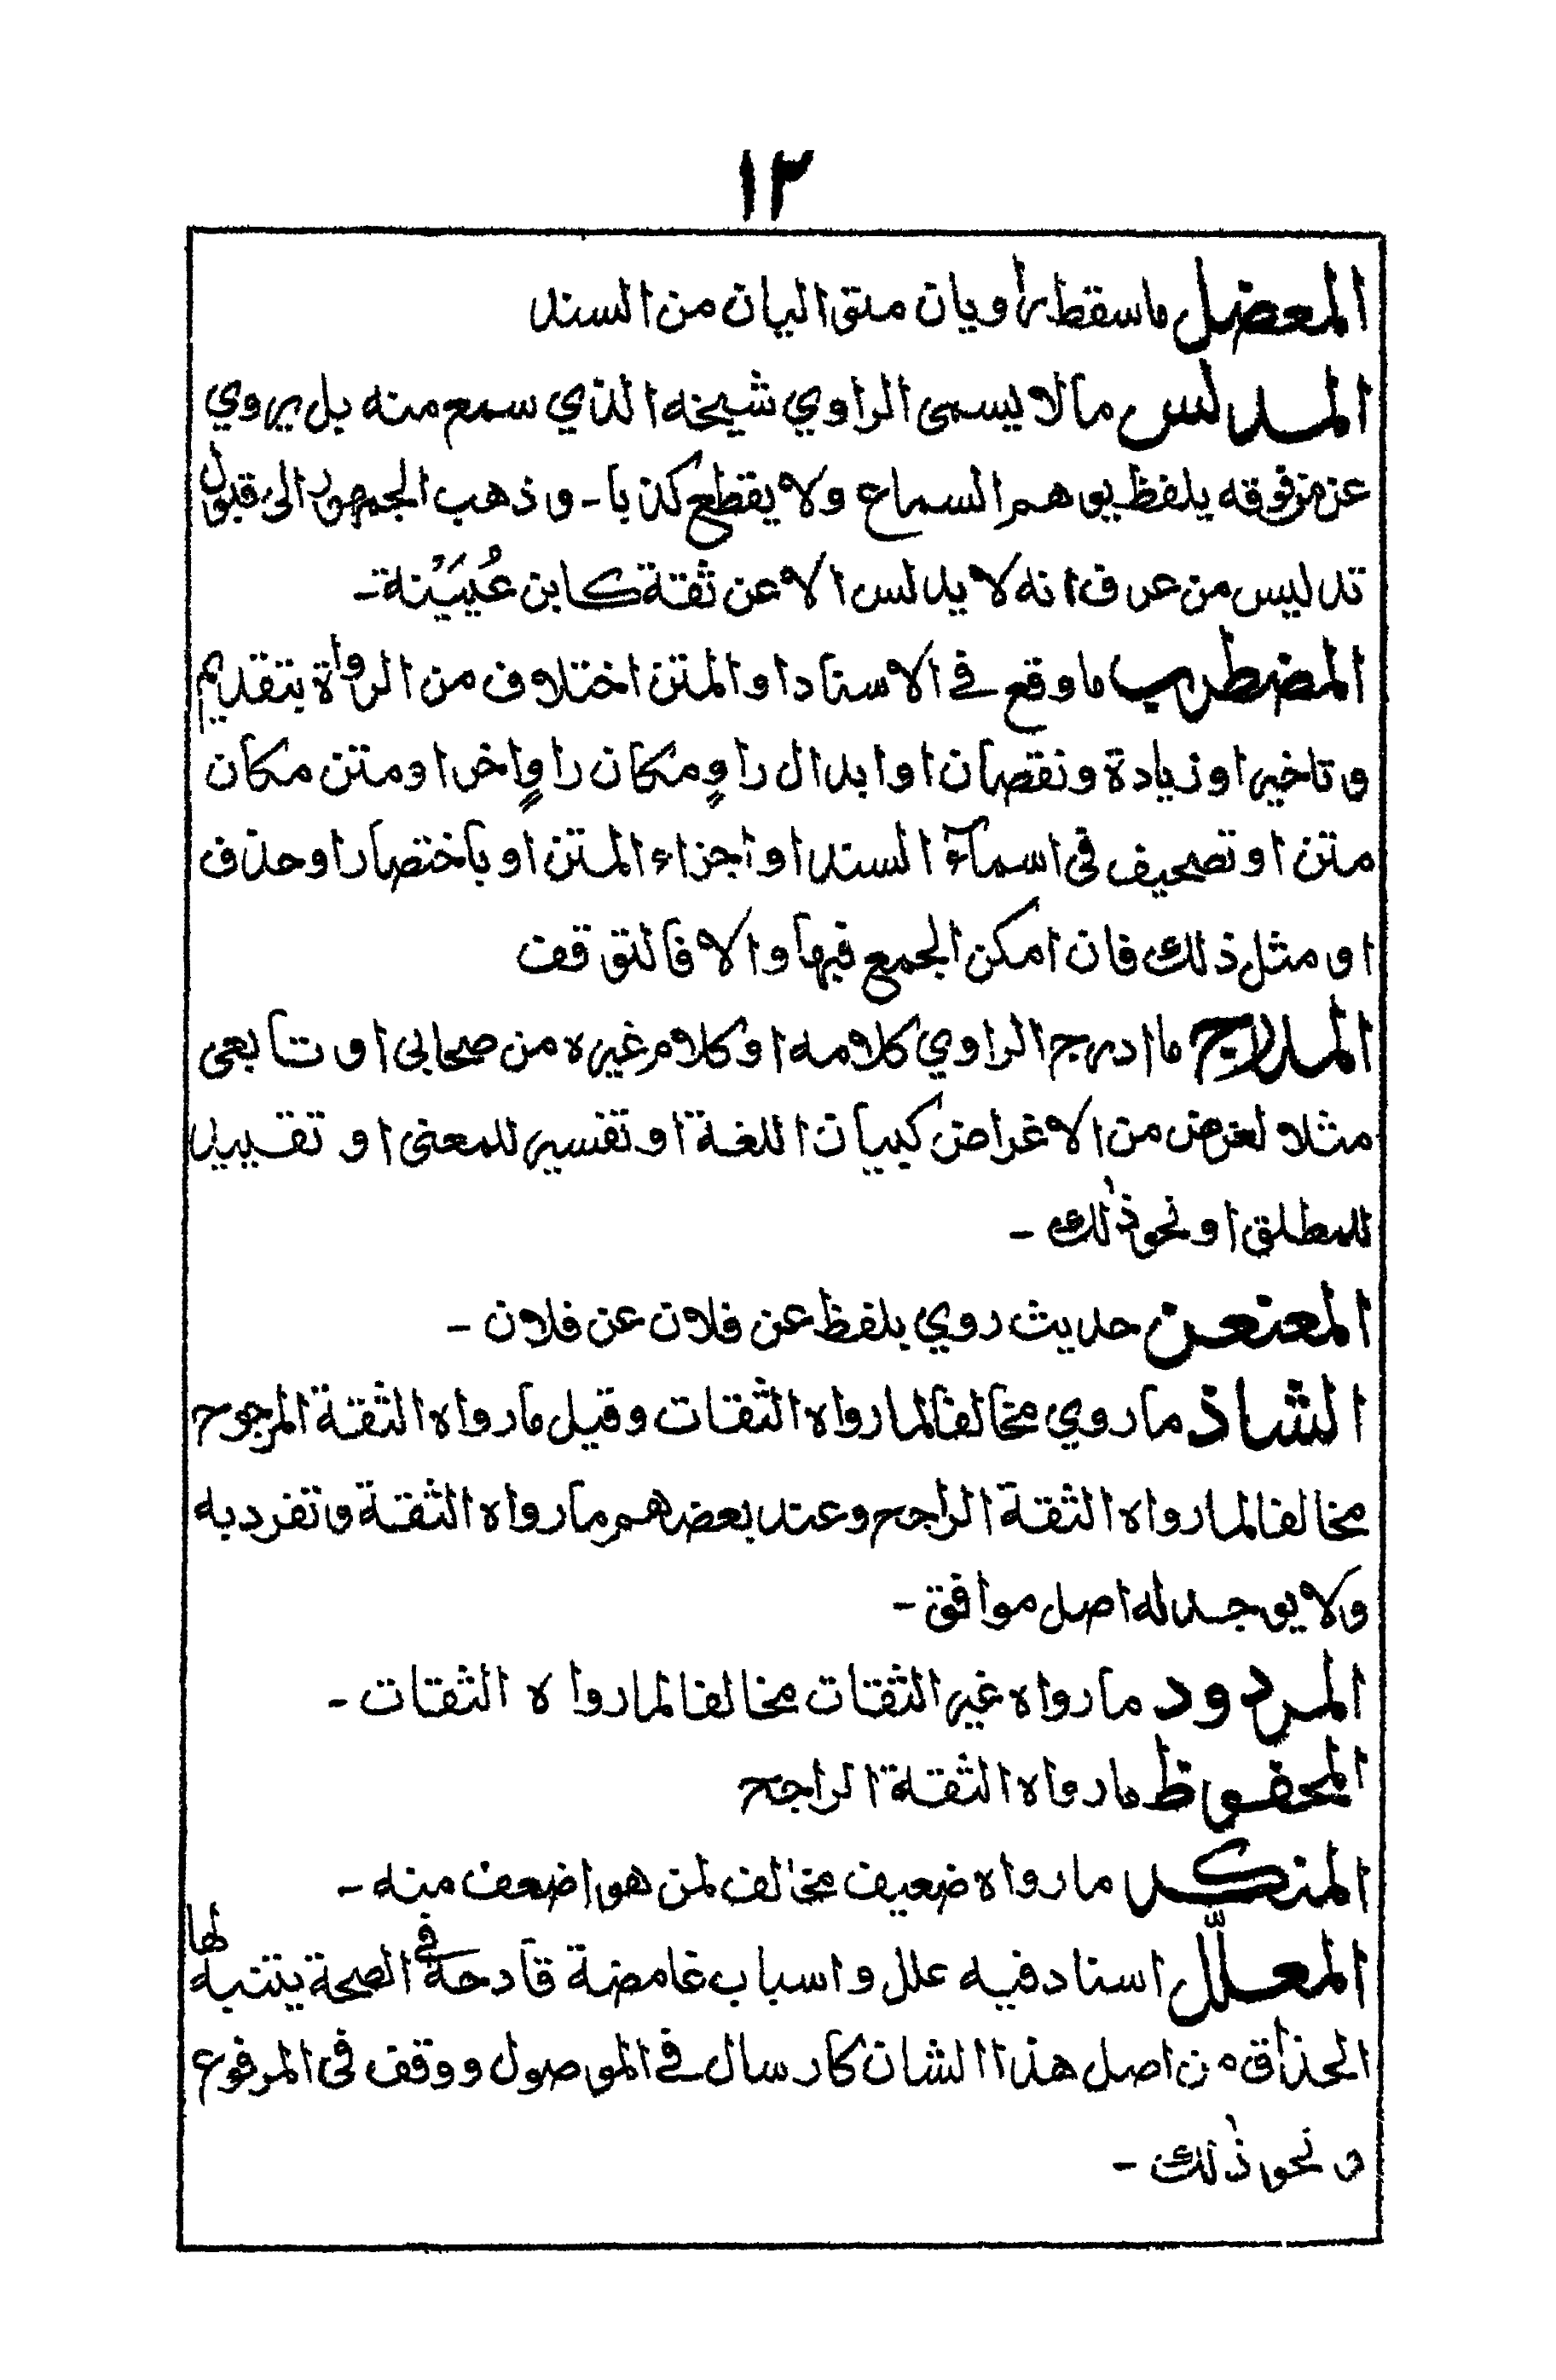 ١٢
المعضل ماسقط راويان متواليان من السند
المدلس مالا يسمى الراوي شيخه الذي سمع منه بل يروي
عن من فوقه بلفظ يوهم السماع ولا يقطع كذبا - وذهب الجمهور الى قبول
تدليس من عرف انه لا يدلس الا عن ثقة كابن عُيَيْنة -
المضطرب ماوقع في الاسناد او المتن اختلاف من الرواة بتقديم
وتاخير او زيادة ونقصان او ابدال راوٍ مكان راوٍ اخر او متن مكان
متن او تصحيف في اسمآء السند او اجزاء المتن او باختصار او حذف
او مثل ذلك فان امكن الجمع فبها والا فالتوقف
المدرج ما ادرج الراوي كلامه او كلام غيره من صحابى او تابعى
مثلا لغرض من الاغراض كبيان اللغة او تفسير للمعنى او تقييد
للمطلق او نحو ذٰلك -
المعنعن حديث روي بلفظ عن فلان عن فلان -
الشاذ ما روي مخالفا لما رواه الثقات وقيل ما رواه الثقة المرجوح
مخالفا لما رواه الثقة الراجح وعند بعضهم ما رواه الثقة وتفرد به
ولا يوجد له اصل موافق -
المردود ما رواه غير الثقات مخالفا لما رواه الثقات -
المحفوظ ما رواه الثقة الراجح
المنكر ما رواه ضعيف مخالف لمن هو اضعف منه -
المعلّل اسناد فيه علل واسباب غامضة قادحة في الصحة يتنبه لها
الحذاق من اصل هذا الشان كارسال في الموصول ووقف في المرفوع
ونحو ذٰلك -